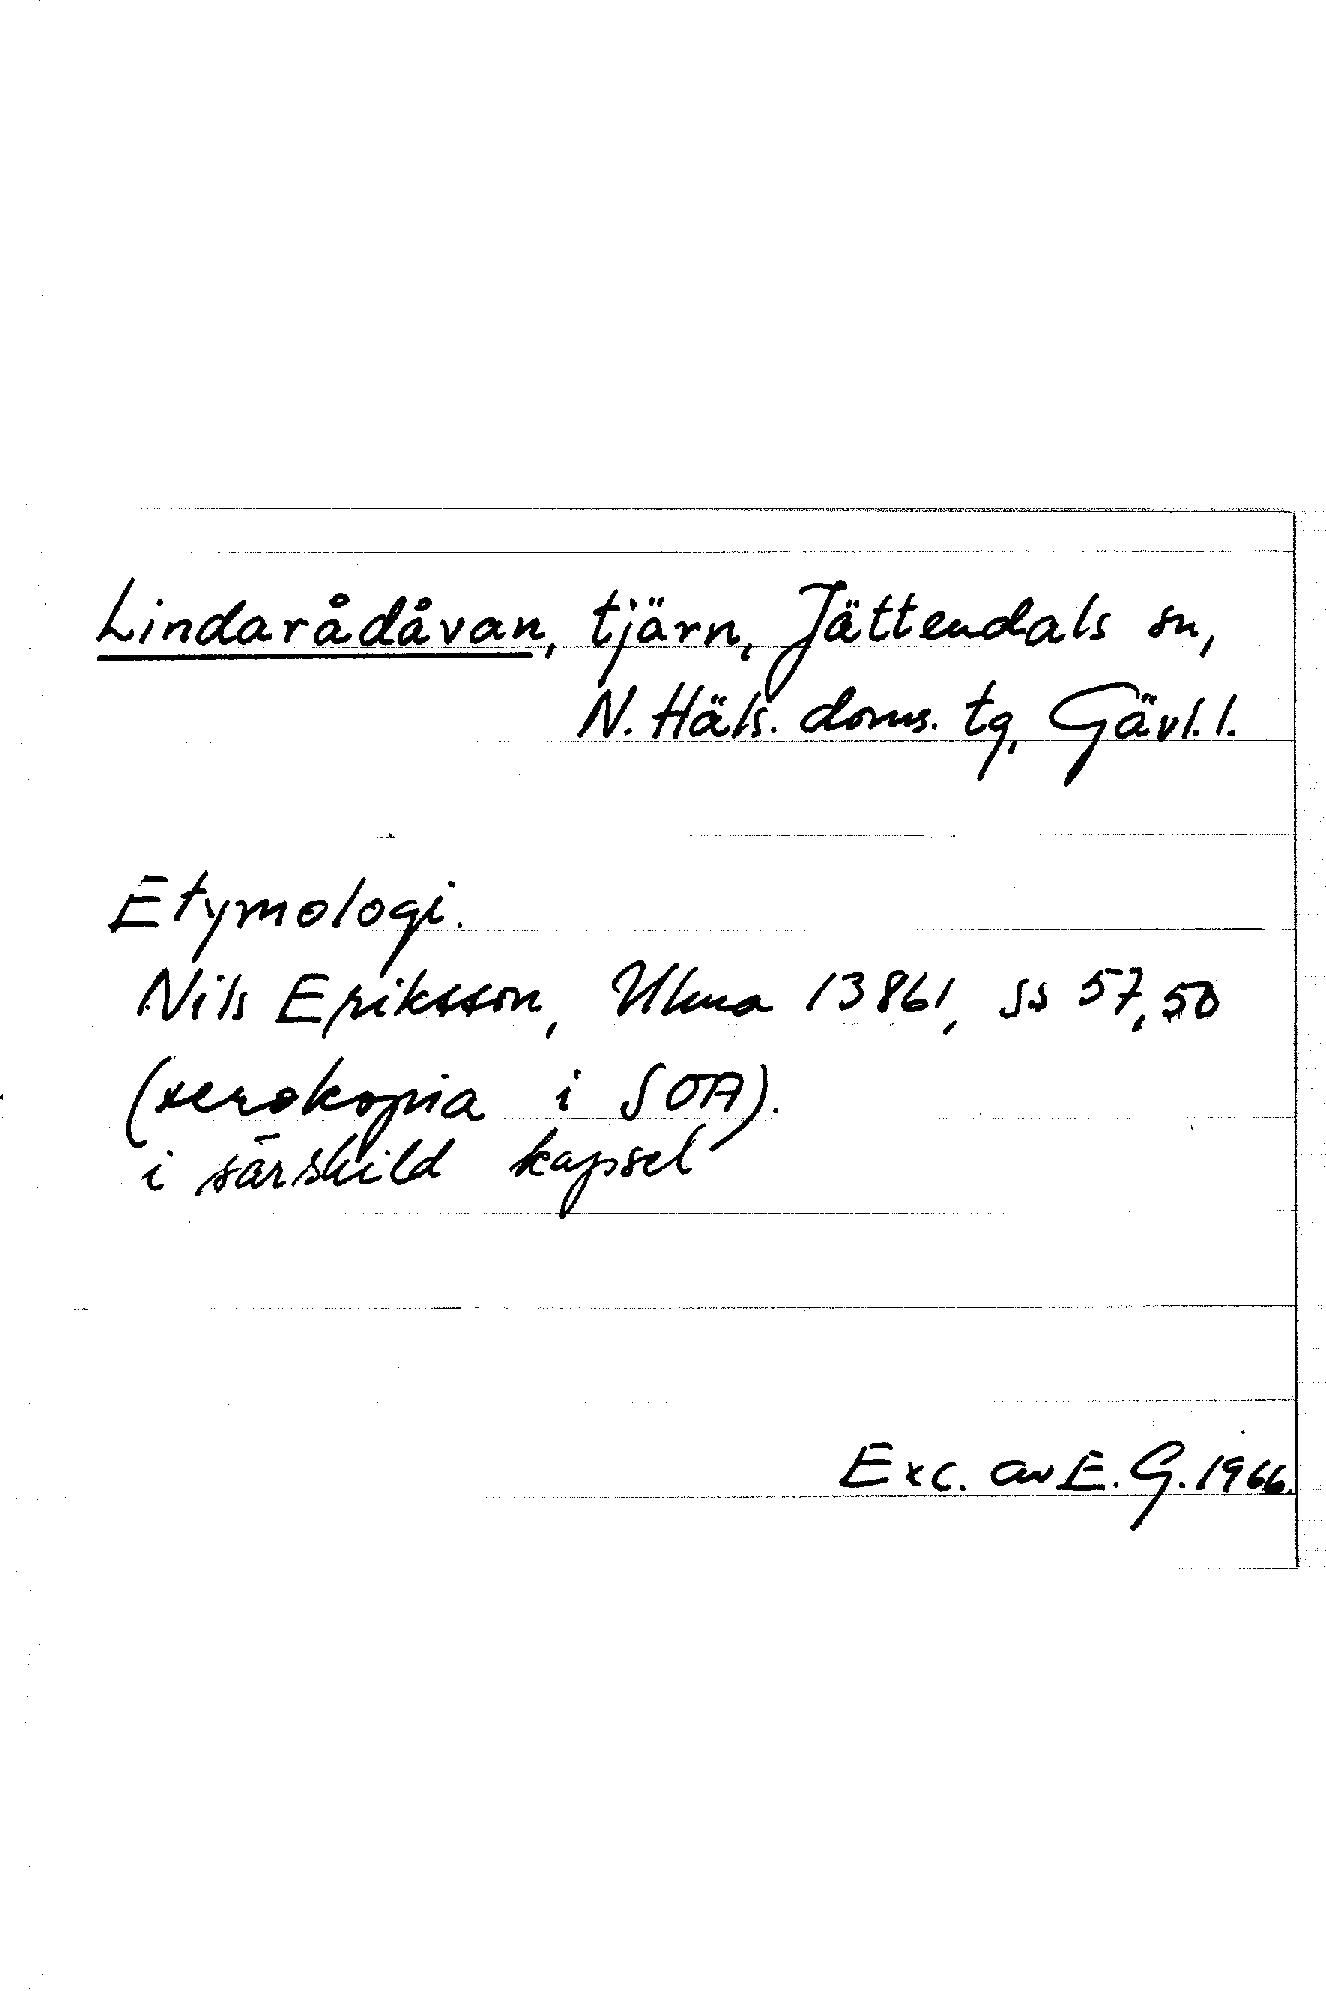 Lindarådåvan, tjärn, Jättendals sn,
N. Häls. doms. tg, Gävl. l.
Etymologi.
Nils Eriksson, Ulma 13861, ss 57, 50
(xerokopia i SOA).
i särskild kapsel
Exc. av E. G. 1966.